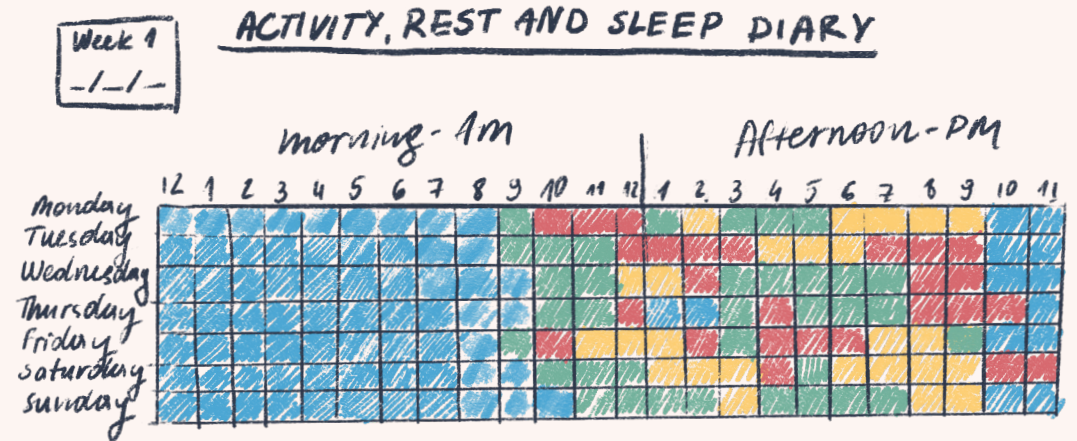 ACTIVITY, REST AND SLEEP DIARY
Week 1
_/_/_
morning - AM
Afternoon - PM
12 1 2 3 4 5 6 7 8 9 10 11 12 1 2 3 4 5 6 7 8 9 10 11
Monday
Tuesday
Wednesday
Thursday
Friday
Saturday
Sunday